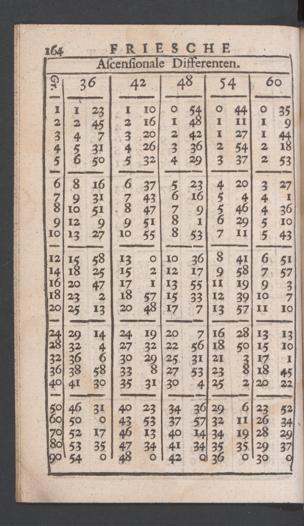 164 FRIESCHE
Ascensionale Differenten.
Gr. 36 42 48 54 60
1 1 23 1 10 0 54 0 44 0 35
2 2 45 2 16 1 48 1 11 1 9
3 4 7 3 20 2 42 1 27 1 44
4 5 31 4 26 3 36 2 54 2 18
5 6 50 5 32 4 29 3 37 2 53
6 8 16 6 37 5 23 4 20 3 27
7 9 31 7 43 6 16 5 4 4 1
8 10 51 8 47 7 9 5 46 4 36
9 12 9 9 51 8 1 6 29 5 10
10 13 27 10 55 8 53 7 11 5 43
12 15 58 13 0 10 36 8 41 6 51
14 18 25 15 2 12 17 9 58 7 57
16 20 47 17 1 13 55 11 19 9 3
18 23 2 18 57 15 33 12 39 10 7
20 25 13 20 48 17 7 13 57 11 10
24 29 14 24 19 20 7 16 28 13 13
28 32 4 27 32 22 56 18 50 15 10
32 36 6 30 29 25 31 21 3 17 1
36 38 58 33 8 27 53 23 8 18 45
40 41 30 35 31 30 4 25 2 20 22
50 46 31 40 23 34 36 29 6 23 52
60 50 0 43 53 37 57 32 11 26 34
70 52 17 46 13 40 14 34 19 28 29
80 53 35 47 34 41 34 35 35 29 37
90 54 0 48 0 42 0 36 0 30 0